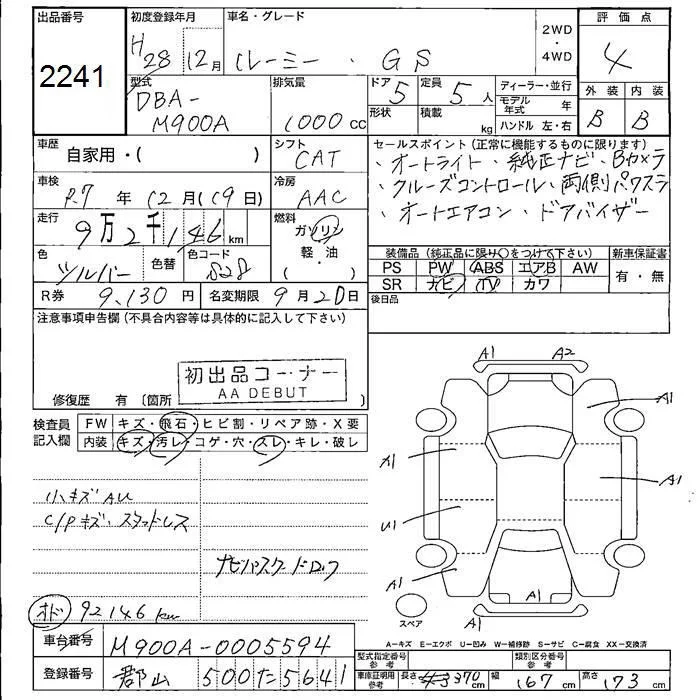 出品番号
2241
初度登録年月
H28 12月
車名・グレード
ルーミー ・ GS
2WD
・
4WD
評価点
4
外装 内装
B B
型式
DBA-
M900A
排気量
1000 cc
ドア 5
定員 5 人
形状
積載 kg
ディーラー・並行
モデル年式 年
ハンドル 左・右
車歴
自家用・( )
シフト
CAT
セールスポイント(正常に機能するものに限ります)
・オートライト・純正ナビ・Bカメラ
・クルーズコントロール・両側パワスラ
・オートエアコン・ドアバイザー
車検
R.7 年 12月(19日)
冷房
AAC
走行
9万2千146 km
燃料
ガソリン
軽・油
( ・ )
色
シルバー
色替
色コード
S28
装備品(純正品に限り○をつけて下さい)
PS PW ABS エアB AW
SR ナビ TV カワ
新車保証書
有・無
R券 9,130円
名変期限 9月20日
後日品
注意事項申告欄(不具合内容等は具体的に記入して下さい)
初出品コーナー
AA DEBUT
修復歴 有 〔箇所
検査員
記入欄
FW キズ・飛石・ヒビ割・リペア跡・X要
内装 キズ・汚レ・コゲ・穴・スレ・キレ・破レ
小キズAU
C/Pキズ・スタッドレス
ナビパスワードロック
オド 92146km
A1 A2
A1
A1
A1
U1
A1
A1
A1
スペア
A-キズ E-エクボ U-凹み W-補修跡 S-サビ C-腐食 XX-交換済
車台番号 M900A-0005594
登録番号 郡山 500た5641
型式指定番号 参考
類別区分番号 参考
車庫証明用 参考
長さ 370cm 幅 167cm 高さ 173cm